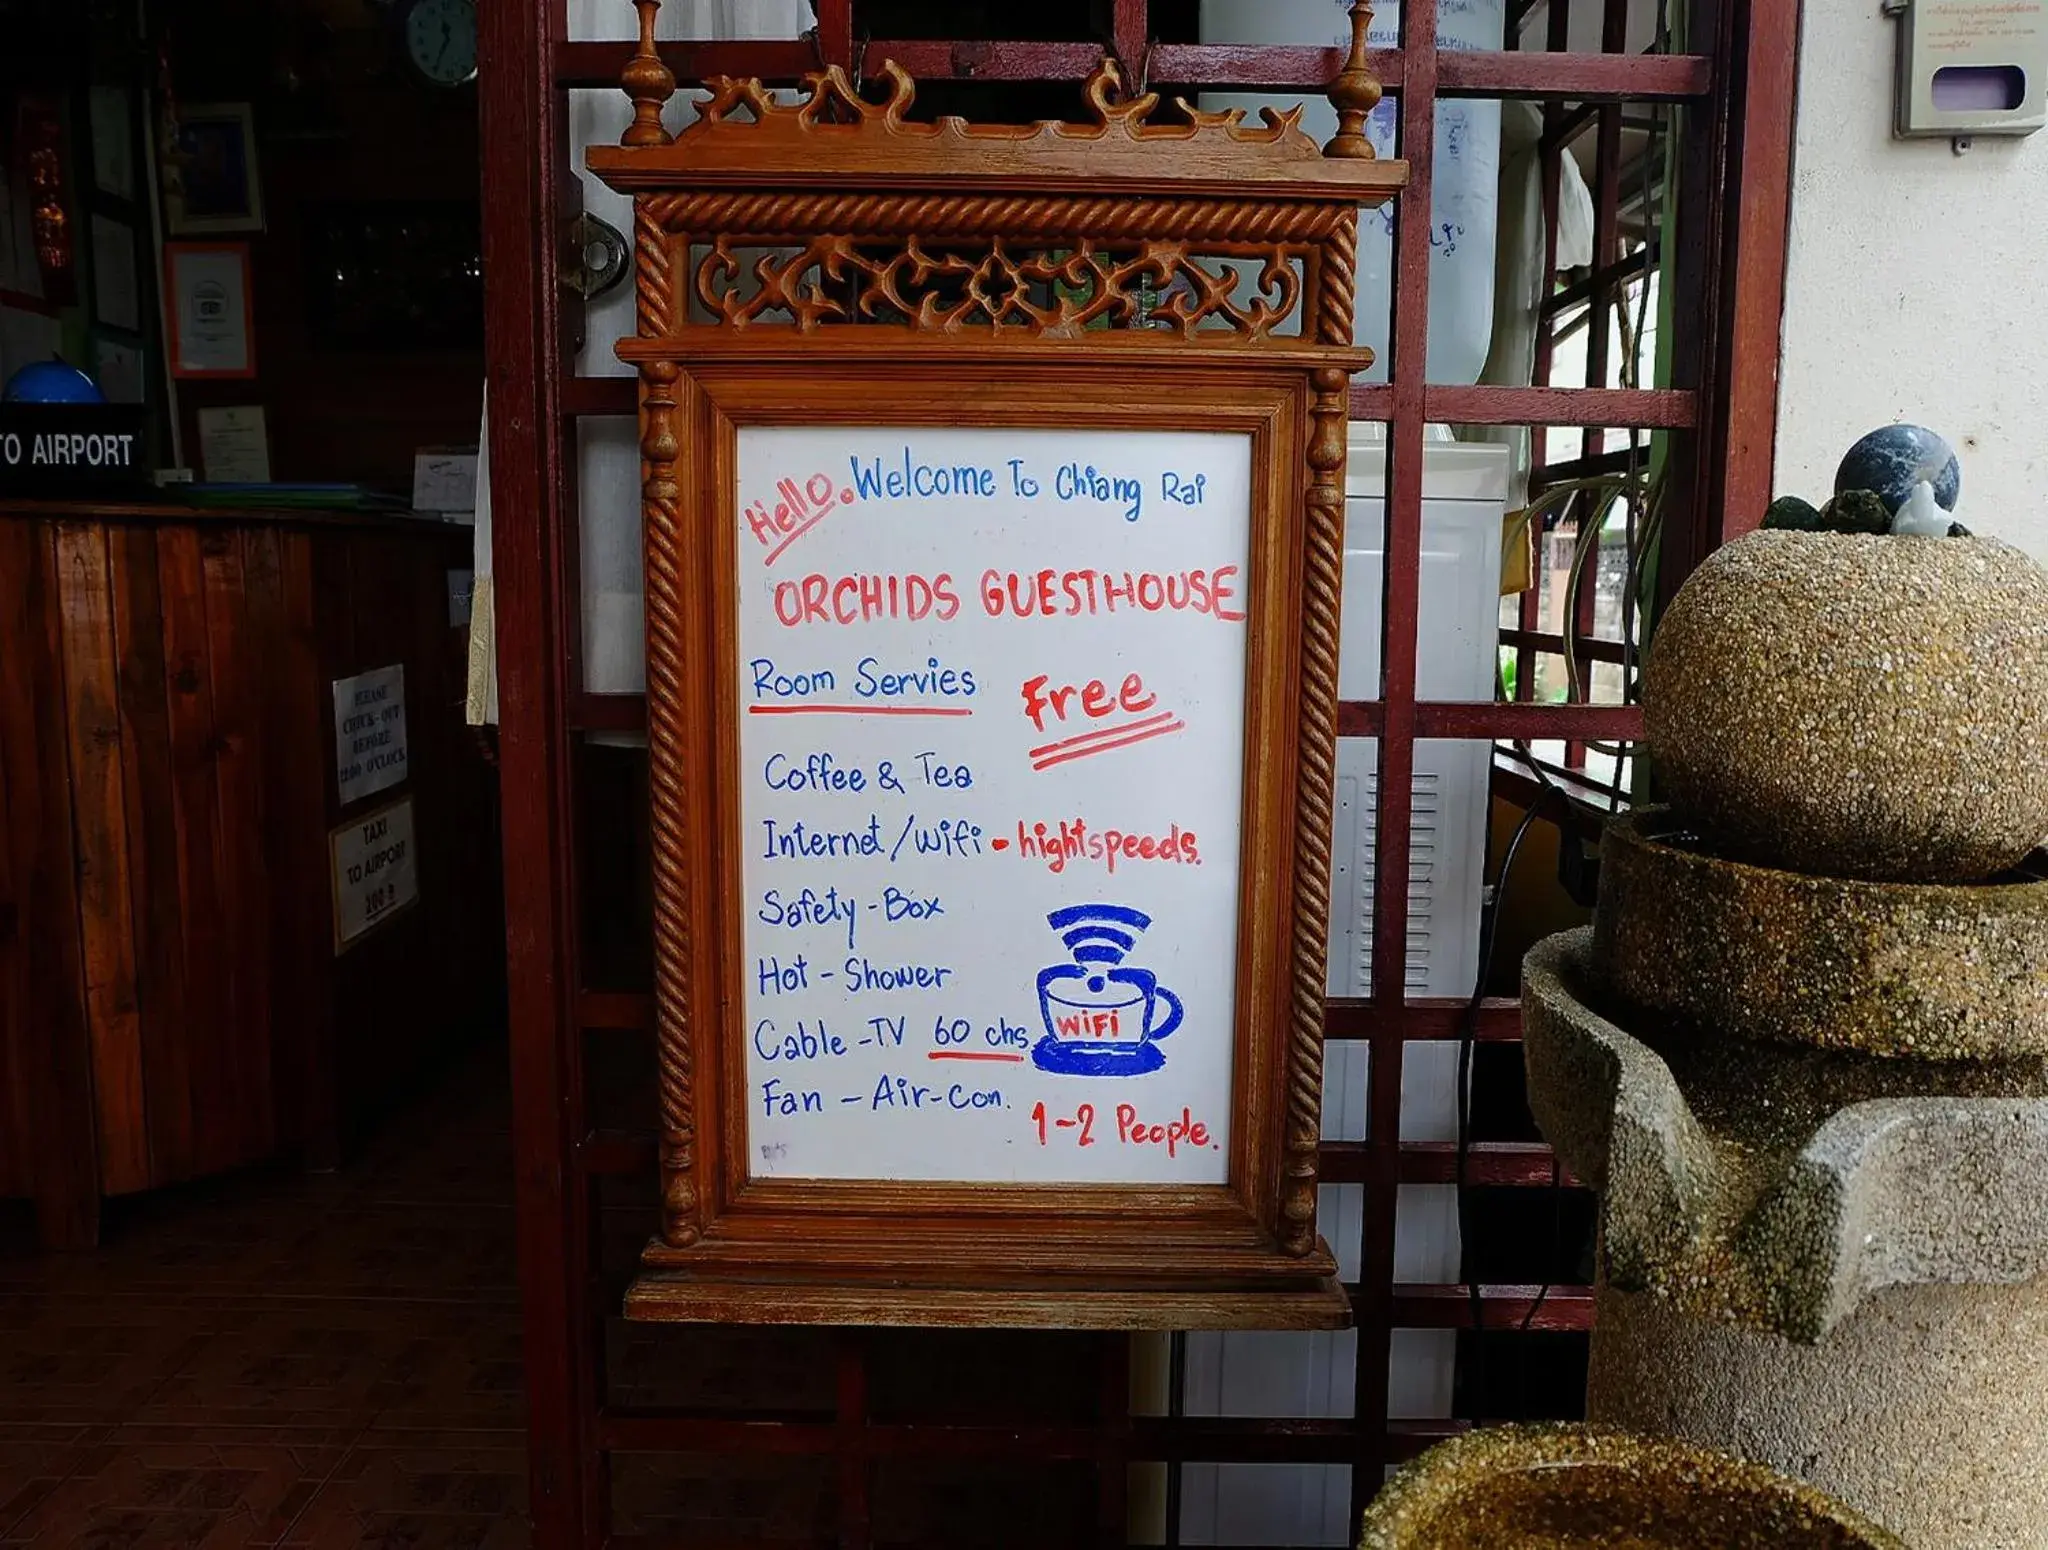 TO AIRPORT
PLEASE
CHECK-OUT
BEFORE
12:00 O'CLOCK
TAXI
TO AIRPORT
200 ฿
Hello. Welcome To Chiang Rai
ORCHIDS GUESTHOUSE
Room Servies Free
Coffee & Tea
Internet/Wifi - hightspeeds.
Safety-Box
Hot-Shower
Cable-TV 60 chs
WiFi
Fan-Air-Con.
1-2 People.